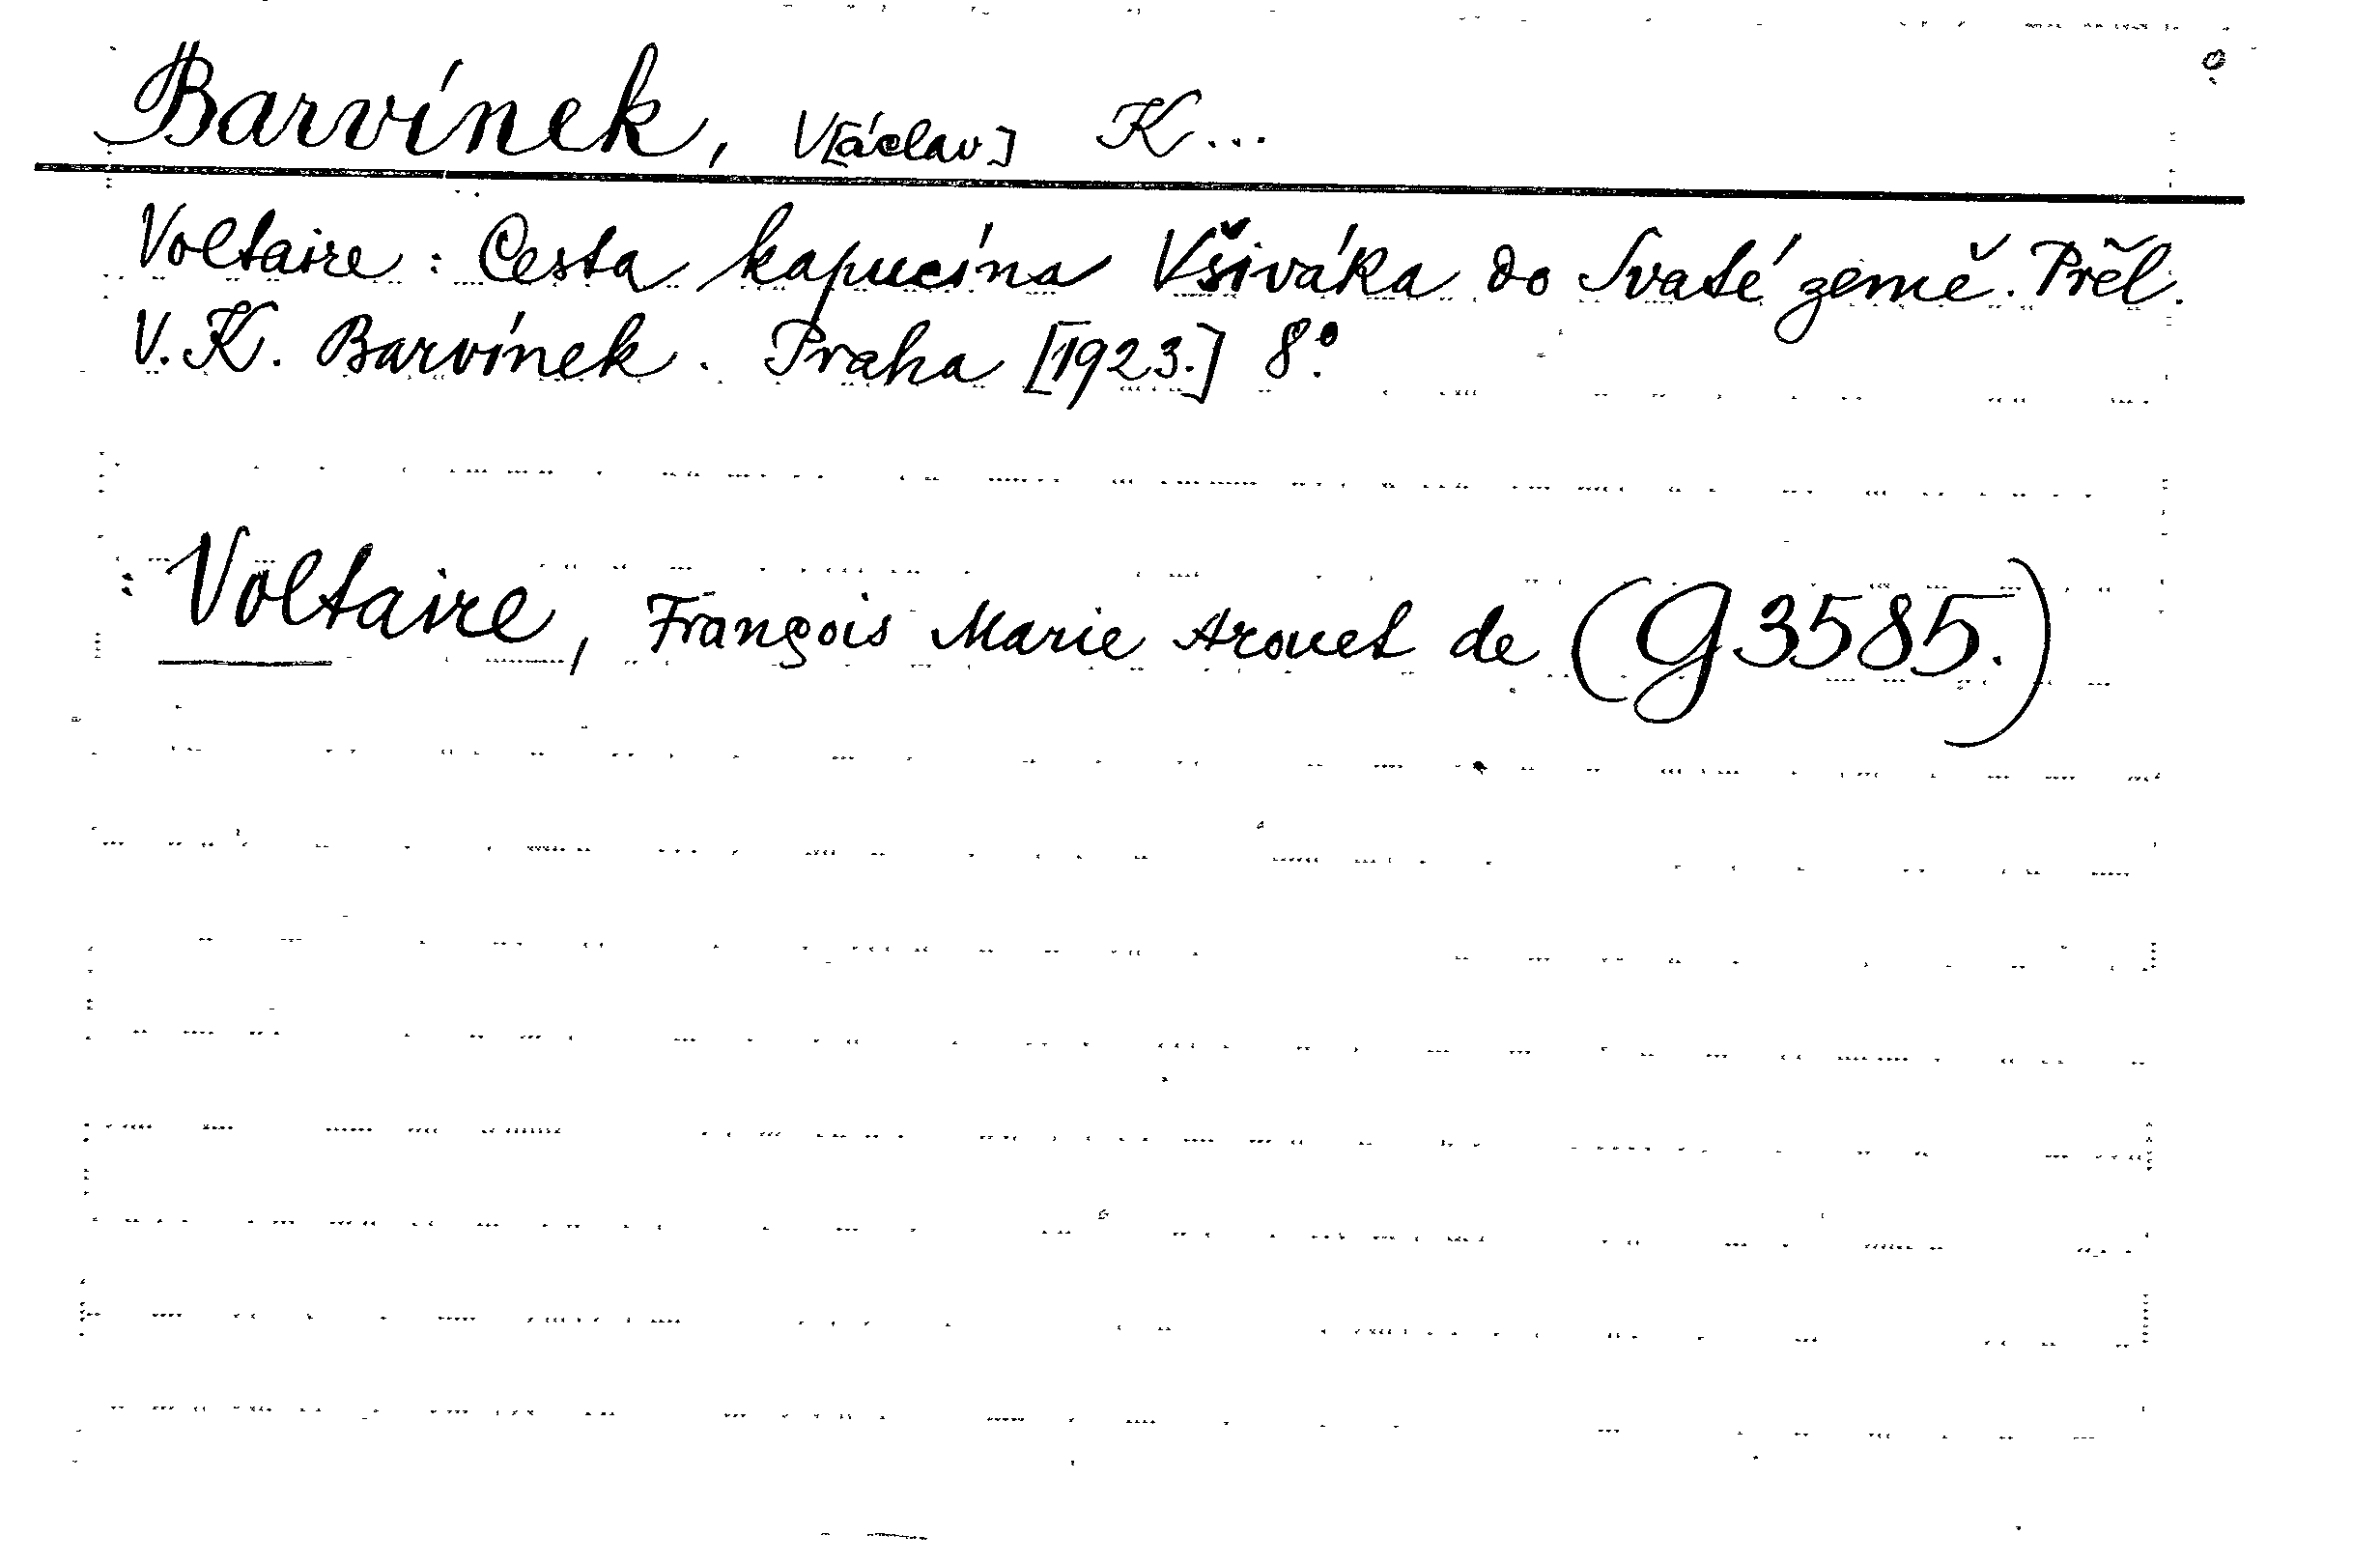 Barvínek, V[áclav] K...
Voltaire: Cesta kapucína Všiváka do Svaté země. Přel.
V. K. Barvínek. Praha [1923.] 8°.
Voltaire, François Marie Arouet de (G 3585.)